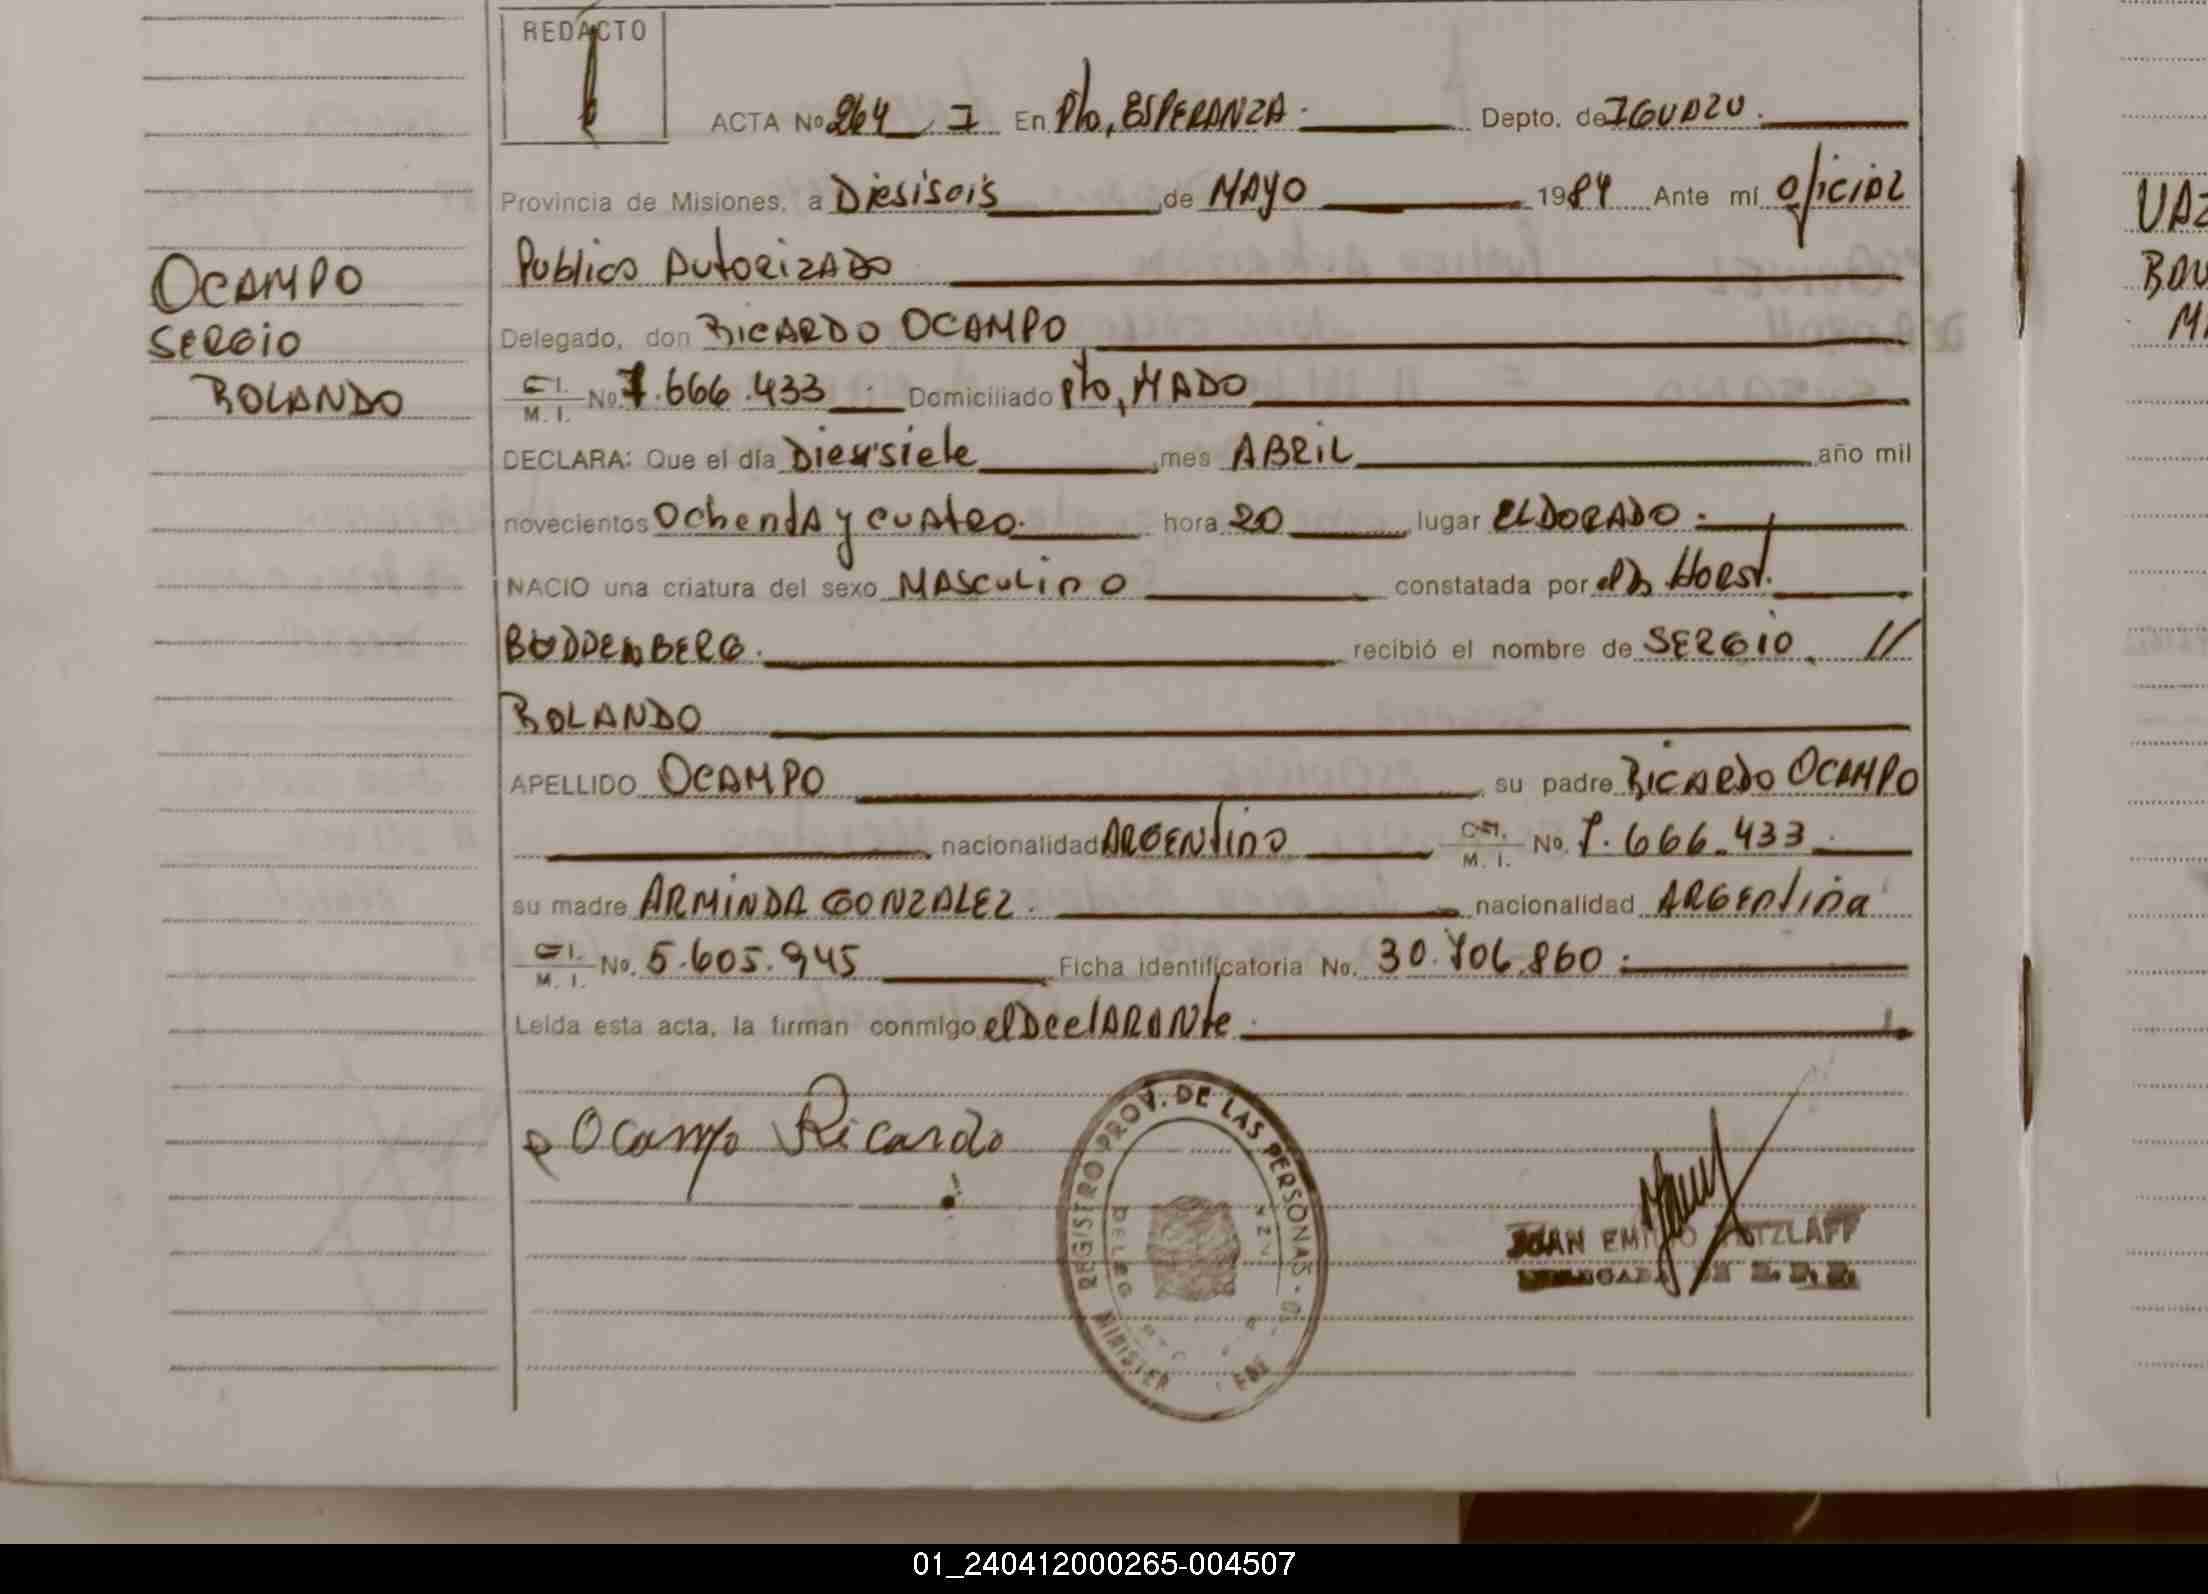 REDACTO
ACTA No 264 I En Pto, ESPERANZA. Depto. de IGUAZU.
Provincia de Misiones, a Diesiseis de MAYO 1984 Ante mí oficial
Publico Autorizado
Delegado, don RICARDO OCAMPO
C.I. M. I. No 7.666.433 Domiciliado Pto, MADO
DECLARA: Que el día Diesisiete mes ABRIL año mil
novecientos Ochenta y cuatro. hora 20 lugar ELDORADO.
NACIO una criatura del sexo MASCULINO constatada por el Dr Horst.
BUDDENBERG. recibió el nombre de SERGIO //
ROLANDO
APELLIDO OCAMPO su padre RICARDO OCAMPO
nacionalidad ARGENTINO C.I. M. I. No. 7.666.433
su madre ARMINDA GONZALEZ. nacionalidad ARGENTINA
C.I. M. I. No. 5.605.945 Ficha identificatoria No. 30.706.860
Leída esta acta, la firman conmigo el DeclARANte
OCAMPO
SERGIO
ROLANDO
Ocampo Ricardo
REGISTRO PROV. DE LAS PERSONAS
DELEG
MINISTER
JUAN EMILIO
VAZ
BAU
MA
01_240412000265-004507